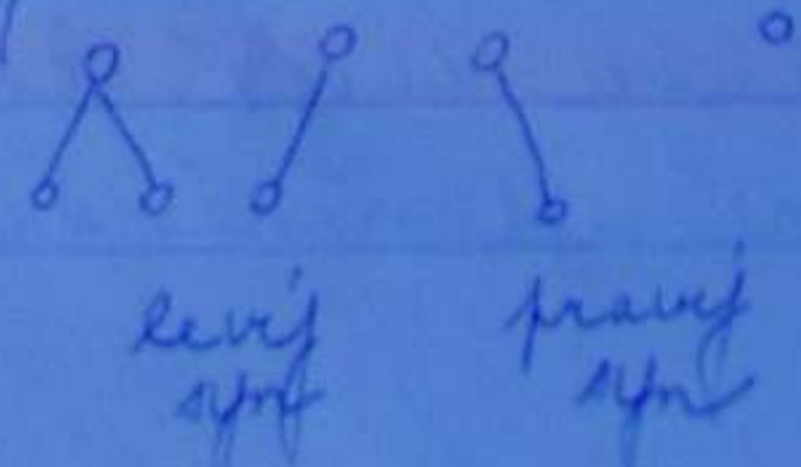 levý
syn
pravý
syn